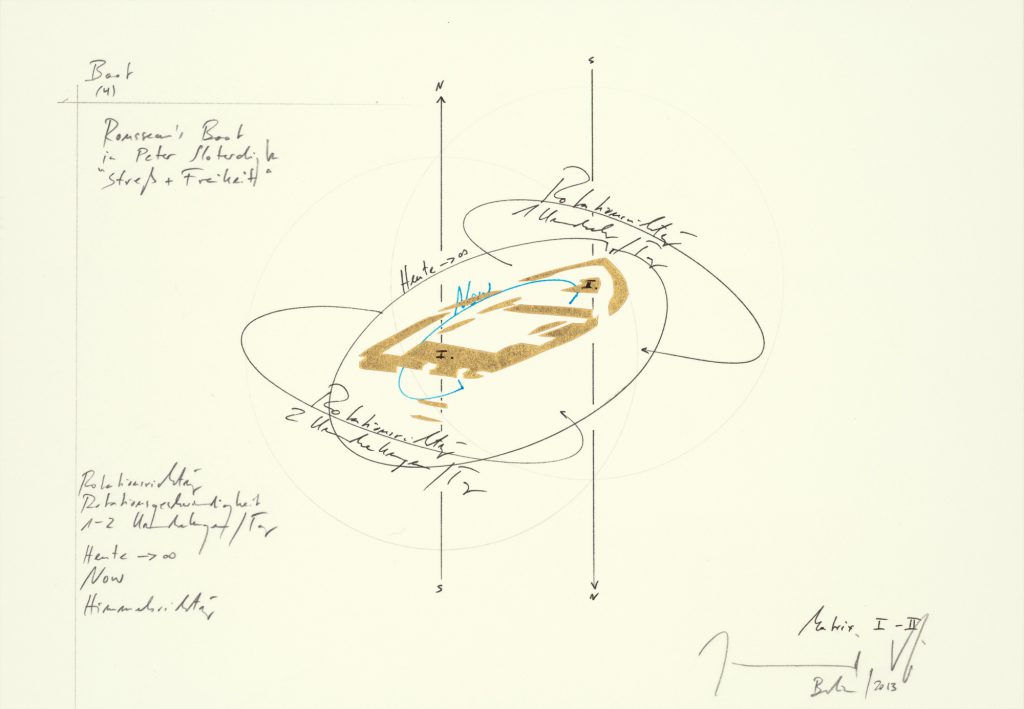 Boot
(4)
N
S
Rousseau's Boot
in Peter Sloterdijk
"Streß + Freiheit"
Rotationsrichtung
1 Umdrehung/Tag
Heute → ∞
Now
I.
I.
Rotationsrichtung
2 Umdrehungen/Tag
Rotationsrichtung
Rotationsgeschwindigkeit
1-2 Umdrehungen/Tag
Heute → ∞
Now
Himmelsrichtung
S
N
Matrix I-IV
Berlin/2013